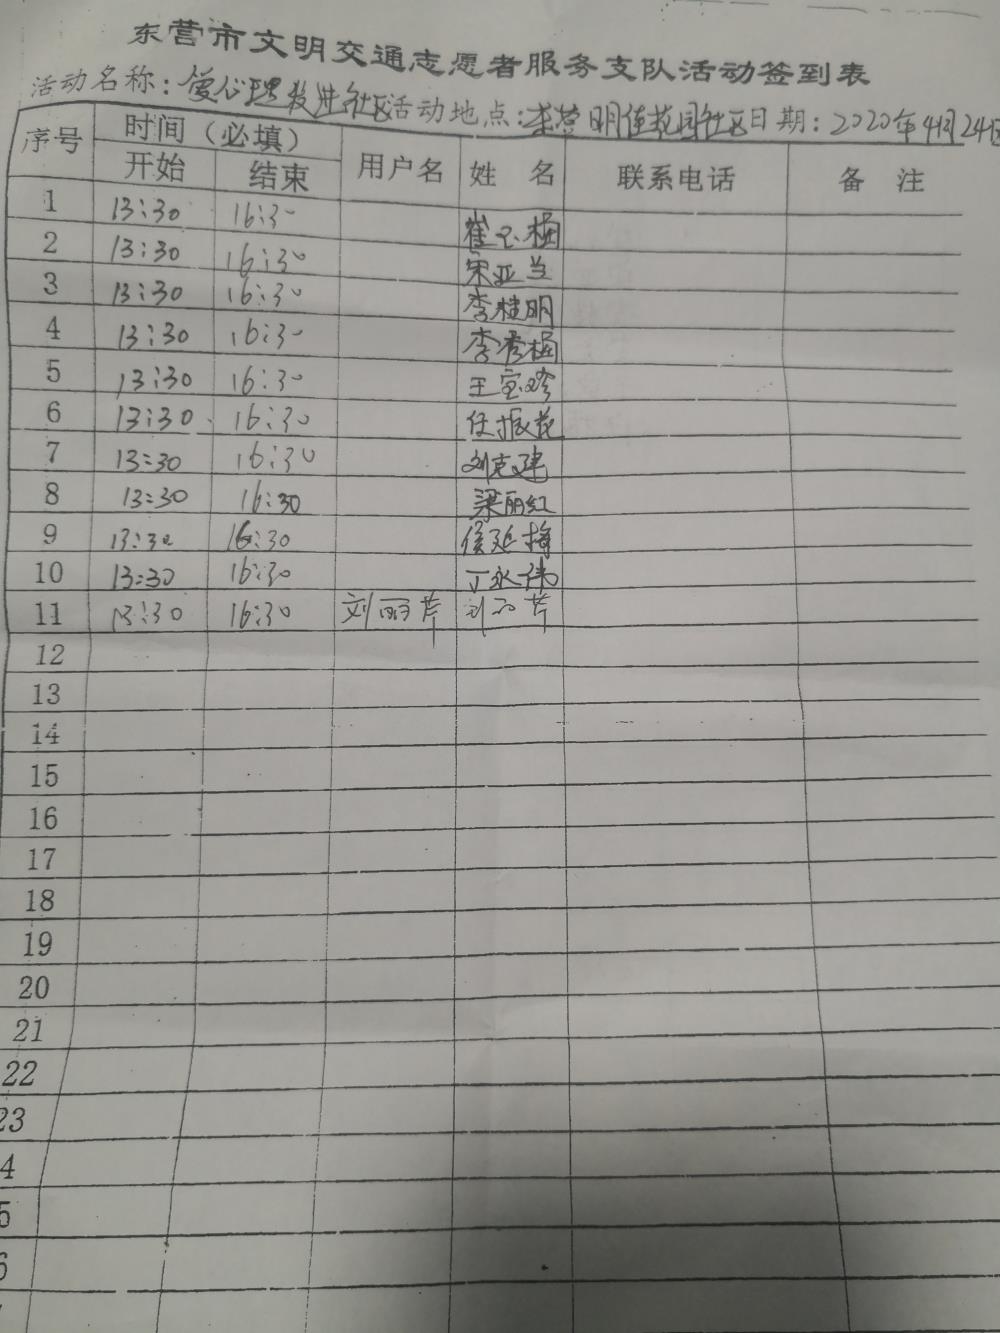 东营市文明交通志愿者服务支队活动签到表
活动名称：爱心理发进社区 活动地点：东营明佳花园社区 日期：2020年4月24日
序号 时间（必填） 用户名 姓 名 联系电话 备 注
开始 结束
1 13:30 16:30 崔玉梅
2 13:30 16:30 宋亚兰
3 13:30 16:30 李桂明
4 13:30 16:30 李秀梅
5 13:30 16:30 王宝珍
6 13:30 16:30 任振花
7 13:30 16:30 刘克建
8 13:30 16:30 梁丽红
9 13:30 16:30 侯延梅
10 13:30 16:30 丁永伟
11 13:30 16:30 刘丽芹 刘丽芹
12
13
14
15
16
17
18
19
20
21
22
23
4
5
6